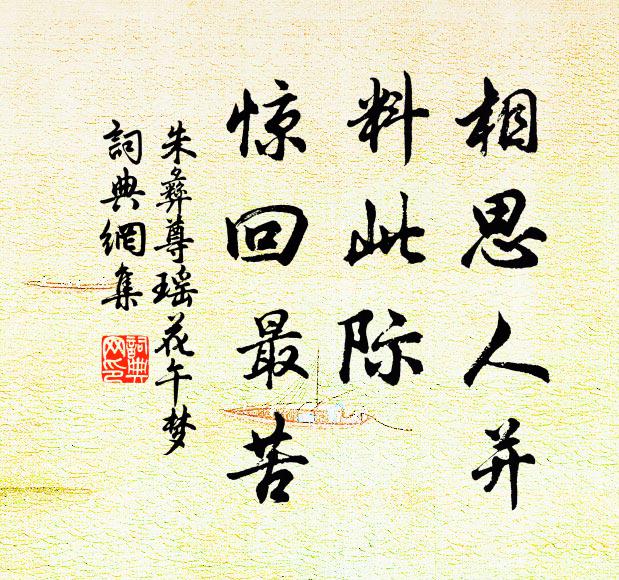 相思人并
料此际
惊回最苦
朱彝尊瑶花午梦
詞典網集
詞典
网印